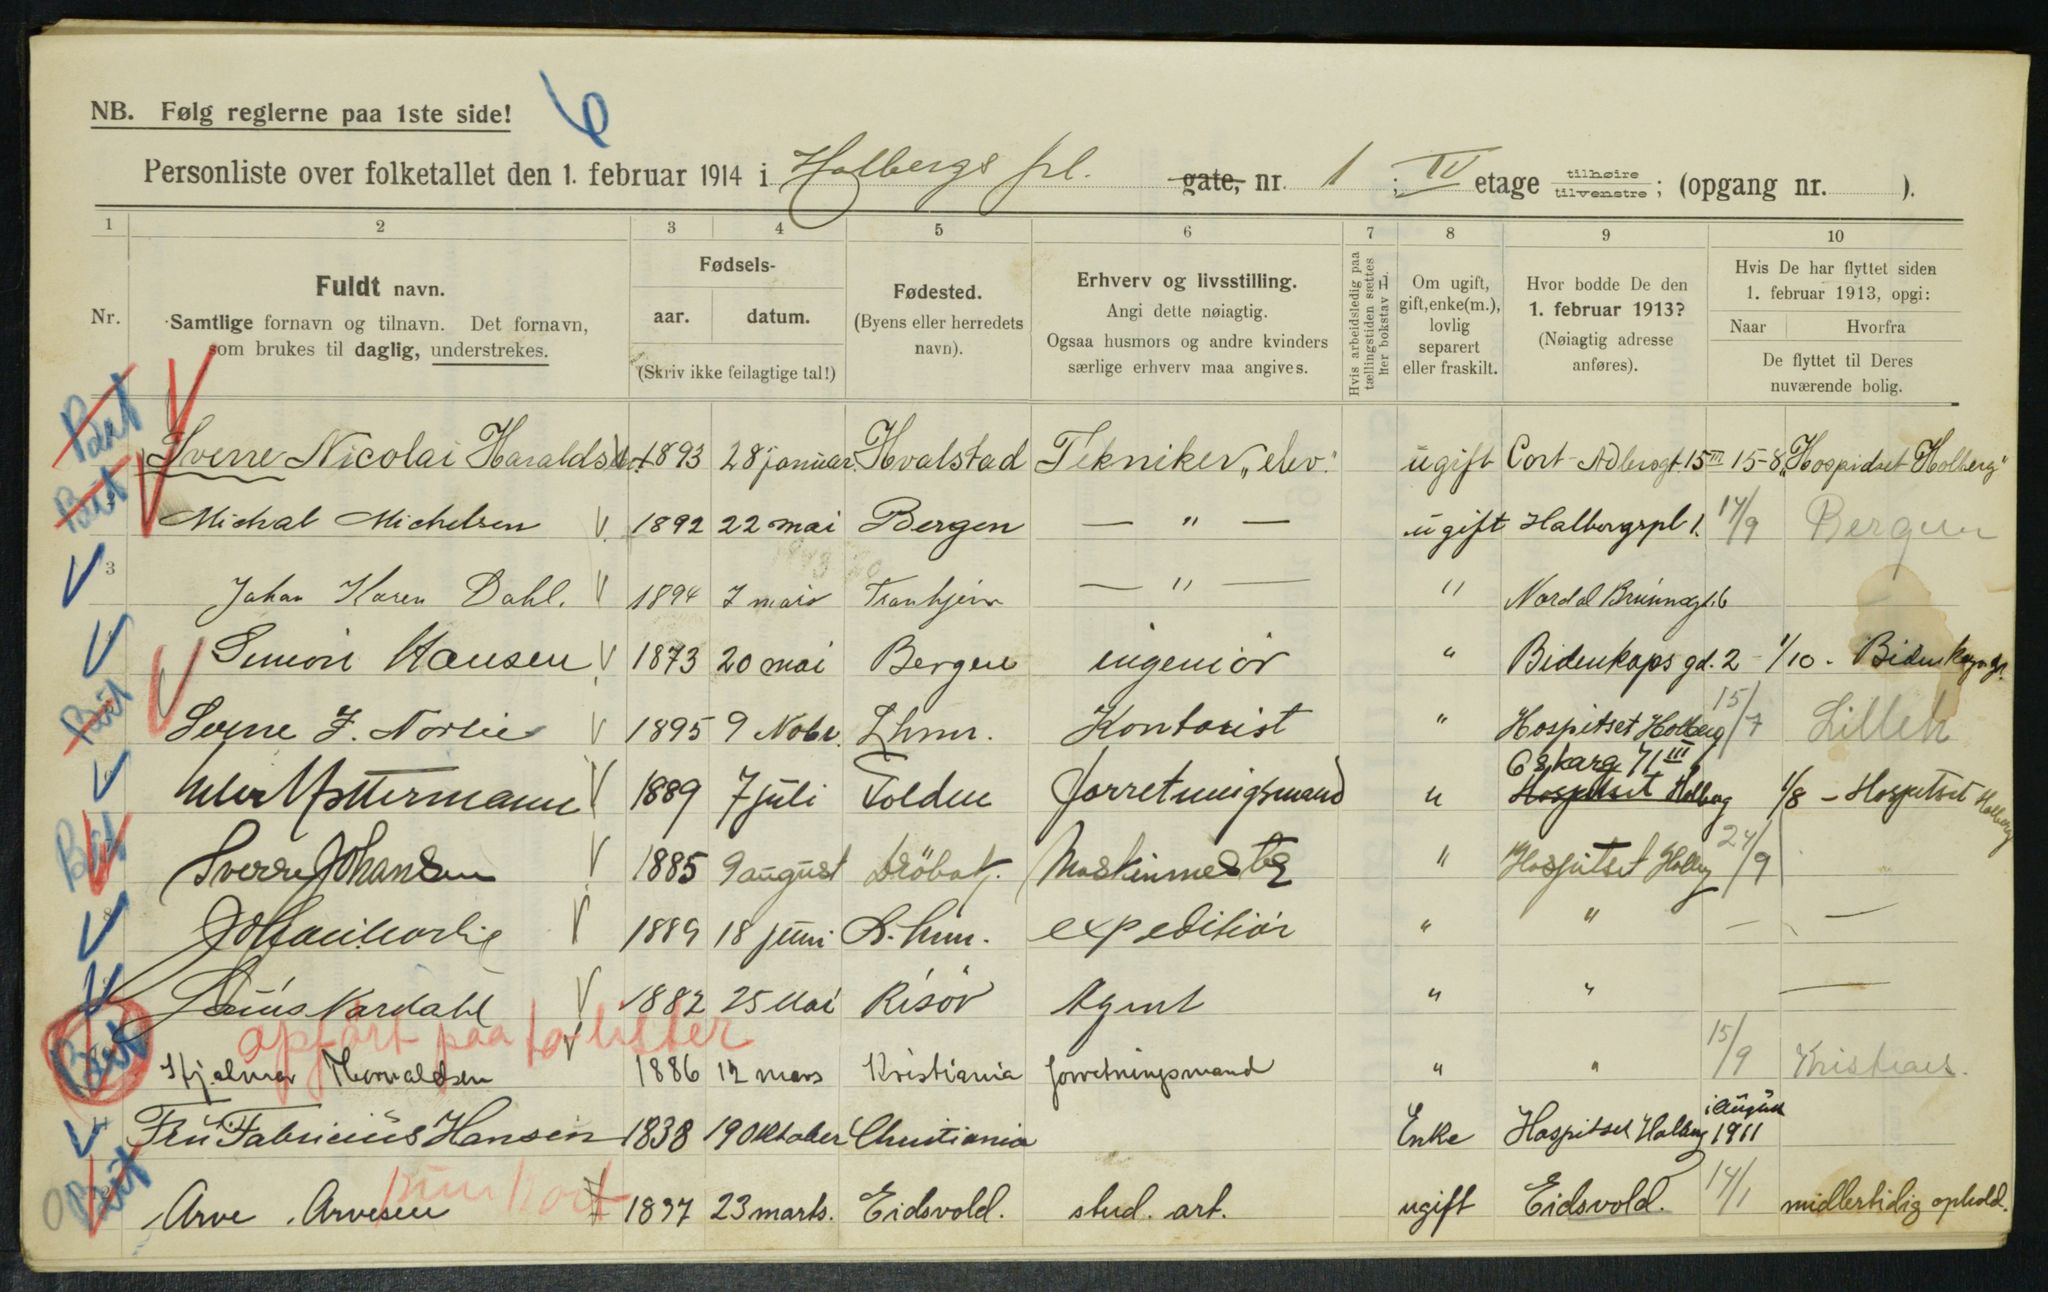 NB. Følg reglerne paa 1ste side!
6
Personliste over folketallet den 1. februar 1914 i Holbergs pl. gate, nr. 1 ; IV etage tilhøire tilvenstre ; (opgang nr. ).
1 2 3 4 5 6 7 8 9 10
Nr.
Fuldt navn.
Samtlige fornavn og tilnavn. Det fornavn,
som brukes til daglig, understrekes.
Fødsels-
aar. datum.
(Skriv ikke feilagtige tal!)
Fødested.
(Byens eller herredets
navn).
Erhverv og livsstilling.
Angi dette nøiagtig.
Ogsaa husmors og andre kvinders
særlige erhverv maa angives.
Hvis arbeidsledig paa
tællingstiden sættes
her bokstav L.
Om ugift,
gift, enke(m.),
lovlig
separert
eller fraskilt.
Hvor bodde De den
1. februar 1913?
(Nøiagtig adresse
anføres).
Hvis De har flyttet siden
1. februar 1913, opgi:
Naar Hvorfra
De flyttet til Deres
nuværende bolig.
Sverre Nicolai 1893 28 januar. Hvalstad Tekniker „elev." ugift Cort Adlersgt. 15 III 15-8 „Hospidset Holberg"
Michal Michelsen 1892 22 mai Bergen — " — ugift Holbergspl 1. 17/9 Bergen
3 Johan Karen Dahl. 1894 7 mars — " — " Nordal Brunsgt. 6
Simon Hansen 1873 20 mai Bergen ingeniör " Bidenkaps gd. 2 1/10 - Bidenkapsgt.
Sverre F. Norlie 1895 9 Nobr. Lhmr. Kontorist " Hospitset Holberg 15/7 Lilleh
1889 7 juli Tolden forretningsmand " Oskarg 71 III Hospitset Holberg 1/8 - Hospitset Holberg
Sverre Johansen 1885 9 august Dröbak. Maskinmester " Hospitset Holberg 24/9 "
1889 18 juni L. hmr. expeditiör " " — —
Nardahl 1882 25 Mai Risör Agent " " —
opført paa to lister
Hjalmar Thorvaldsen 1886 12 mars Kristiania forretningsmand " " 15/9 Kristians.
Fru Fabricius Hansen 1838 19 Oktober Christiania Enke Hospitset Holberg i August 1911
Arve Arvesen 1897 23 marts. Eidsvold. stud. art. ugift Eidsvold. 14/1 midlertidig ophold.